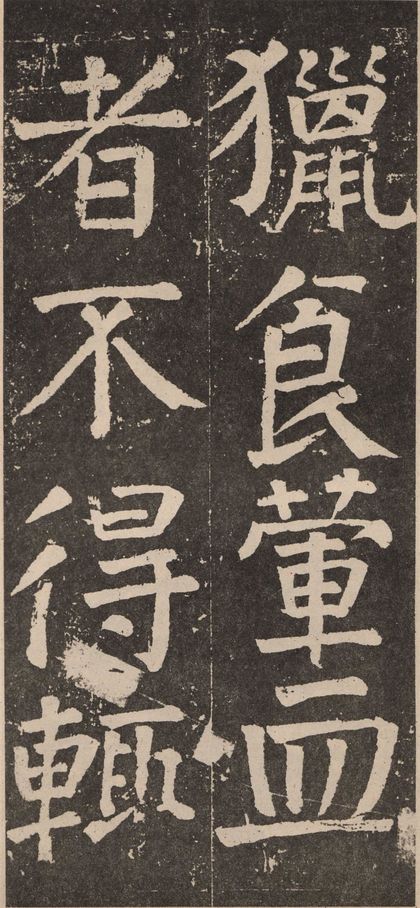 獵食葷血
者不得輒